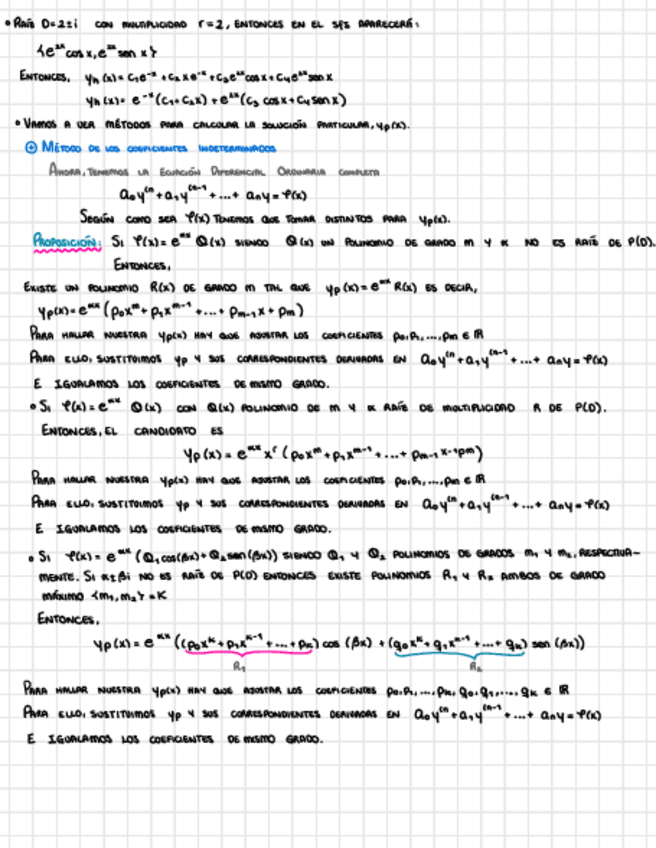 • Raíz D=2±i con multiplicidad r=2, entonces en el SFS aparecerá:
{e²ˣ cos x, e²ˣ sen x}
Entonces, yh(x) = C₁e⁻ˣ + C₂xe⁻ˣ + C₃e²ˣ cos x + C₄e²ˣ sen x
yh(x) = e⁻ˣ(C₁+C₂x) + e²ˣ(C₃ cos x + C₄ sen x)
• Vamos a ver métodos para calcular la solución particular, yp(x).
⊕ Método de los coeficientes indeterminados
Ahora, tenemos la Ecuación Diferencial Ordinaria completa
a₀y⁽ⁿ + a₁y⁽ⁿ⁻¹ + ... + aₙy = φ(x)
Según como sea φ(x) tenemos que tomar distintos para yp(x).
Proposición: Si φ(x) = e^αx Q(x) siendo Q(x) un polinomio de grado m y α no es raíz de P(D).
Entonces,
Existe un polinomio R(x) de grado m tal que yp(x) = e^αx R(x) es decir,
yp(x) = e^αx (p₀xᵐ + p₁xᵐ⁻¹ + ... + pₘ₋₁x + pₘ)
Para hallar nuestra yp(x) hay que ajustar los coeficientes p₀,p₁,...,pₘ ∈ ℝ
Para ello, sustituimos yp y sus correspondientes derivadas en a₀y⁽ⁿ + a₁y⁽ⁿ⁻¹ + ... + aₙy = φ(x)
e igualamos los coeficientes de mismo grado.
• Si φ(x) = e^αx Q(x) con Q(x) polinomio de m y α raíz de multiplicidad r de P(D).
Entonces, el candidato es
yp(x) = e^αx xʳ (p₀xᵐ + p₁xᵐ⁻¹ + ... + pₘ₋₁ x⁻¹pₘ)
Para hallar nuestra yp(x) hay que ajustar los coeficientes p₀,p₁,...,pₘ ∈ ℝ
Para ello, sustituimos yp y sus correspondientes derivadas en a₀y⁽ⁿ + a₁y⁽ⁿ⁻¹ + ... + aₙy = φ(x)
e igualamos los coeficientes de mismo grado.
• Si φ(x) = e^αx (Q₁cos(βx) + Q₂sen(βx)) siendo Q₁ y Q₂ polinomios de grados m₁ y m₂, respectiva-
mente. Si α±βi no es raíz de P(D) entonces existe polinomios R₁ y R₂ ambos de grado
máximo {m₁,m₂} = K
Entonces,
yp(x) = e^αx ((p₀xᴷ + p₁xᴷ⁻¹ + ... + pₖ) cos (βx) + (q₀xᴷ + q₁xᴷ⁻¹ + ... + qₖ) sen (βx))
R₁ R₂
Para hallar nuestra yp(x) hay que ajustar los coeficientes p₀,p₁,...,pₖ, q₀,q₁,...,qₖ ∈ ℝ
Para ello, sustituimos yp y sus correspondientes derivadas en a₀y⁽ⁿ + a₁y⁽ⁿ⁻¹ + ... + aₙy = φ(x)
e igualamos los coeficientes de mismo grado.